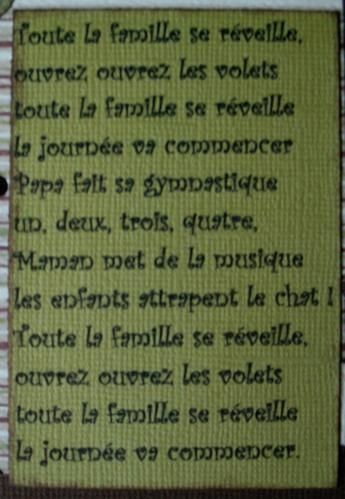 Toute la famille se réveille,
ouvrez ouvrez les volets
toute la famille se réveille
la journée va commencer
Papa fait sa gymnastique
un, deux, trois, quatre,
Maman met de la musique
les enfants attrapent le chat !
Toute la famille se réveille,
ouvrez ouvrez les volets
toute la famille se réveille
la journée va commencer.